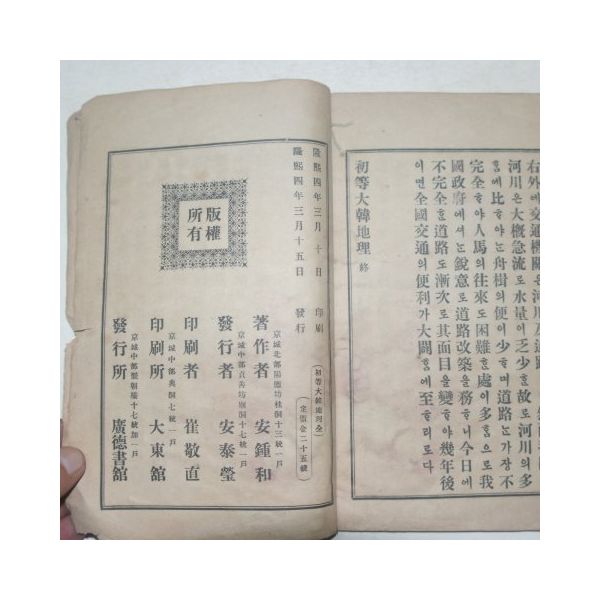 右外에交通機關은河川及道路
河川은大概急流로水量이乏少故로河川의多
홈에比야는舟楫의便이少며道路는가장不
完全야人馬의往來도困難處이多으로我
國政府에셔는銳意로道路改築을務니今日에
不完全道路도漸次로其面目을變야幾年後
이면全國交通의便利가大闢에至리로다
初等大韓地理 終
隆熙四年三月十日 印刷
隆熙四年三月十五日 發行
版權
所有
初等大韓地理全
定價金二十五錢
京城北部陽德坊桂洞十三統一戶
著作者 安鍾和
京城中部貞善坊廟洞十七統一戶
發行者 安泰瑩
印刷者 崔敬直
京城中部奧洞七統一戶
印刷所 大東館
發行所 廣德書館